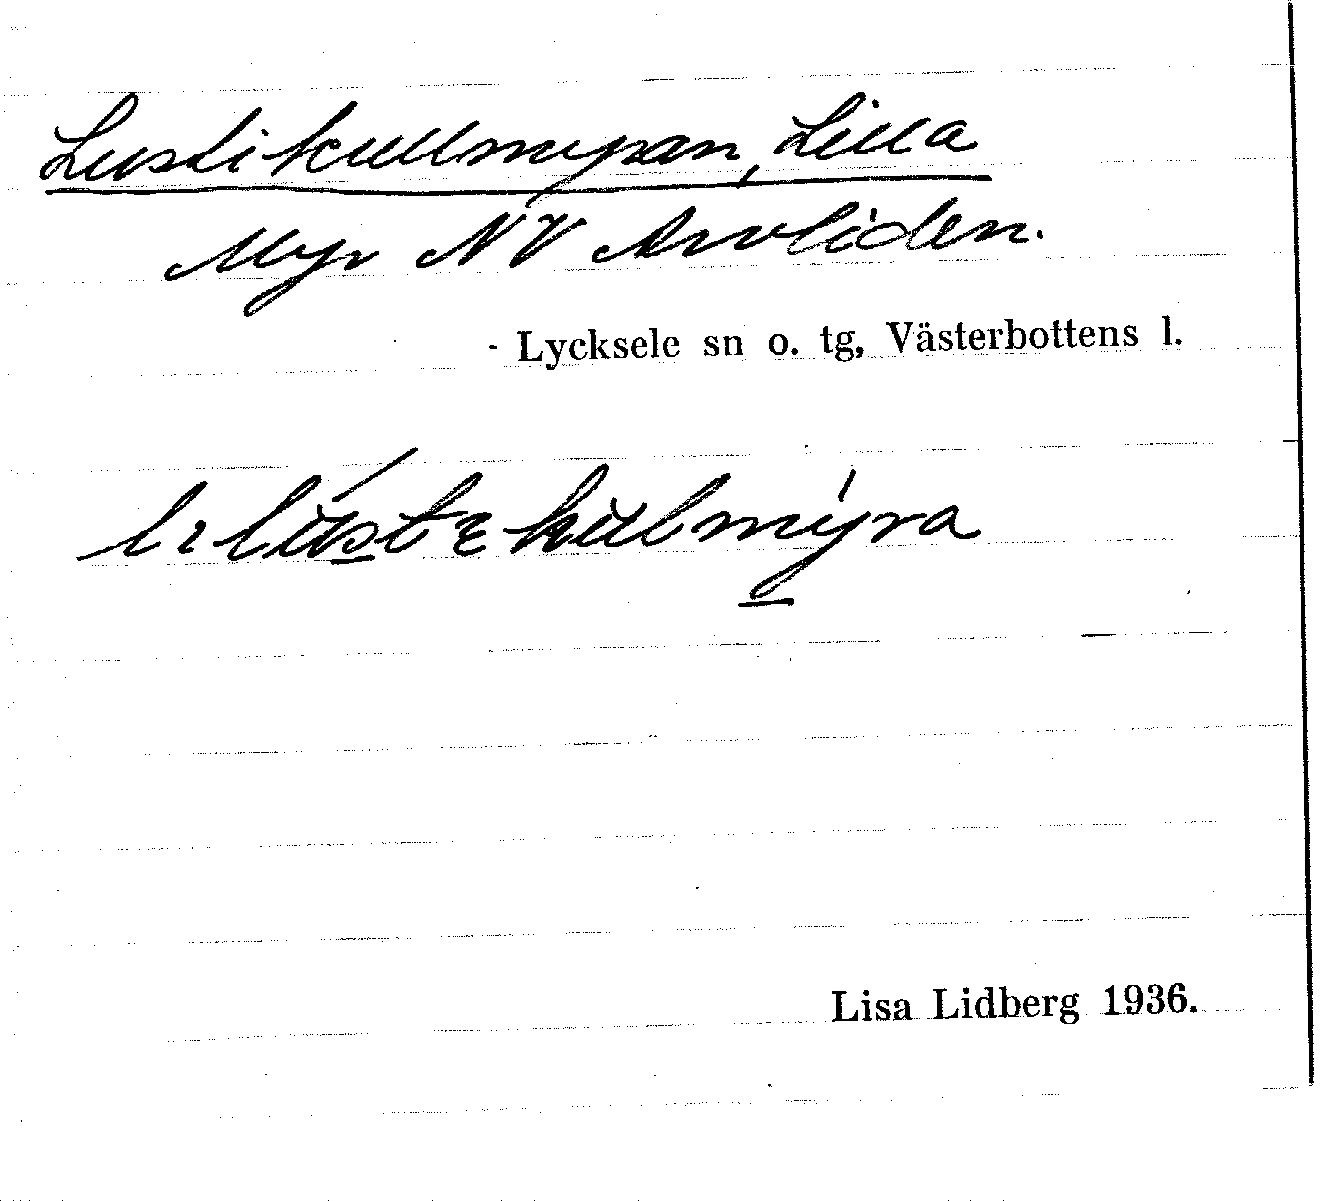 Lustikullmyran, Lilla
Myr NV Arvliden.
- Lycksele sn o. tg, Västerbottens l.
Lisa Lidberg 1936.